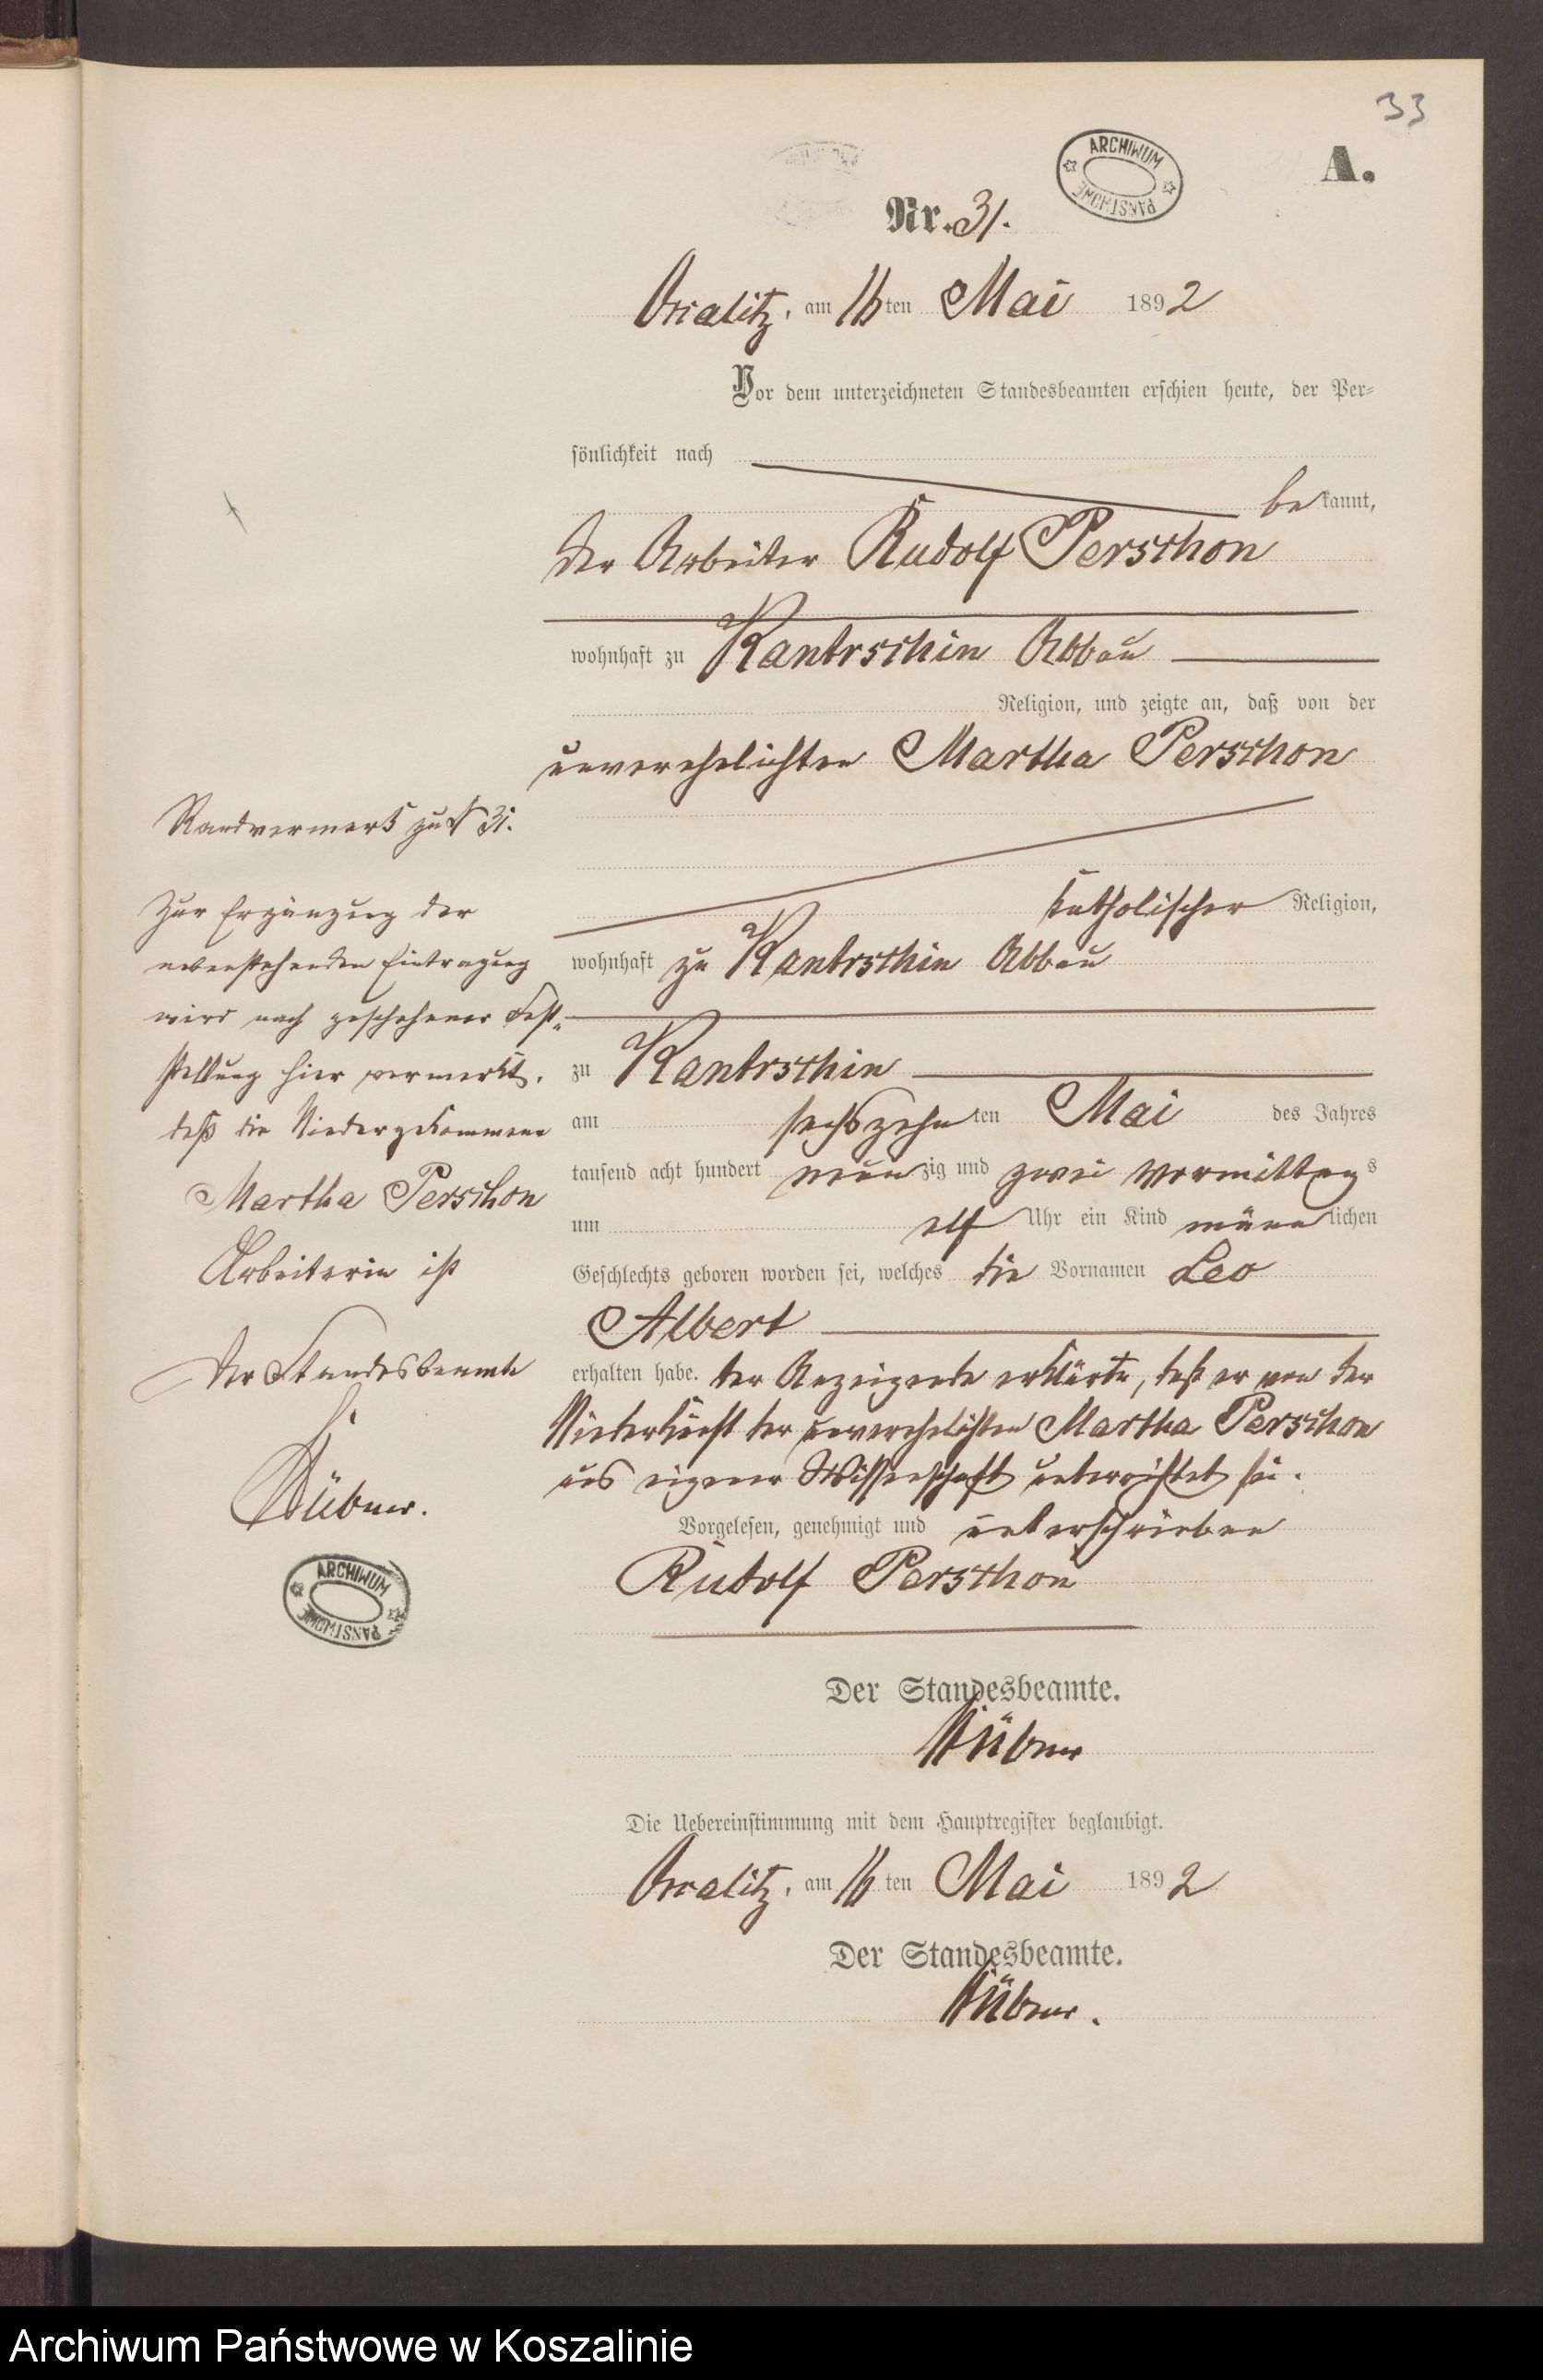 33
ARCHIWUM PAŃSTWOWE
A.
Nr. 31.
Ossalitz, am 16ten Mai 1892
Vor dem unterzeichneten Standesbeamten erschien heute, der Per-
sönlichkeit nach
bekannt,
der Arbeiter Rudolf Perschon
wohnhaft zu Kantrschin Abbau
Religion, und zeigte an, daß von der
unverehelichten Martha Perschon
katholischer Religion,
wohnhaft zu Kantrschin Abbau
zu Kantrschin
am sechszehnten Mai des Jahres
tausend acht hundert neunzig und zwei Vormittags
um elf Uhr ein Kind männlichen
Geschlechts geboren worden sei, welches die Vornamen Leo
Albert
erhalten habe. Der Anzeigende erklärte, daß er von der
Niederkunft der unverehelichten Martha Perschon
aus eigener Wissenschaft unterrichtet sei.
Vorgelesen, genehmigt und unterschrieben
Rudolf Perschon
Der Standesbeamte.
Die Uebereinstimmung mit dem Hauptregister beglaubigt.
Ossalitz, am 16ten Mai 1892
Der Standesbeamte.
Randvermerk zu N 31.
Zur Ergänzung der
nebenstehenden Eintragung
wird nach geschehener Fest-
stellung hier vermerkt,
daß die Niedergekommene
Martha Perschon
Arbeiterin ist
Der Standesbeamte
ARCHIWUM PAŃSTWOWE
Archiwum Państwowe w Koszalinie